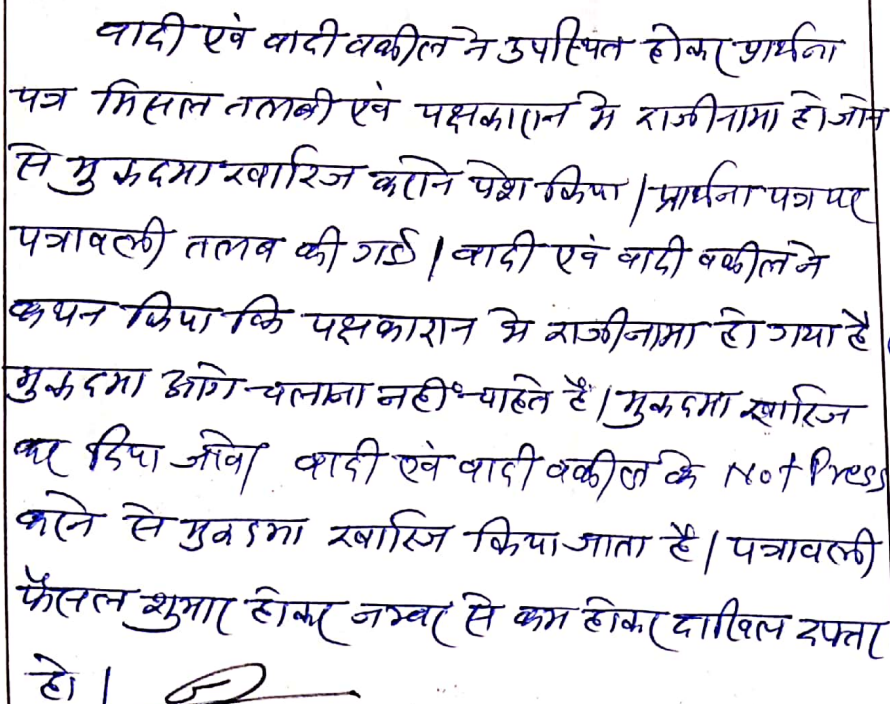 वादी एवं वादी वकील ने उपस्थित होकर प्रार्थना
पत्र मिसल तलबी एवं पक्षकारान मे राजीनामा हो जाने
से मुकदमा खारिज कराने पेश किया। प्रार्थना पत्र पर
पत्रावली तलब की गई। वादी एवं वादी वकील ने
कथन किया कि पक्षकारान मे राजीनामा हो गया है
मुकदमा आगे चलाना नहीं चाहते है। मुकदमा खारिज
कर दिया जावे। वादी एवं वादी वकील के Not Press
करने से मुकदमा खारिज किया जाता है। पत्रावली
फैसल शुमार होकर नम्बर से कम होकर दाखिल दफ्तर
हो।